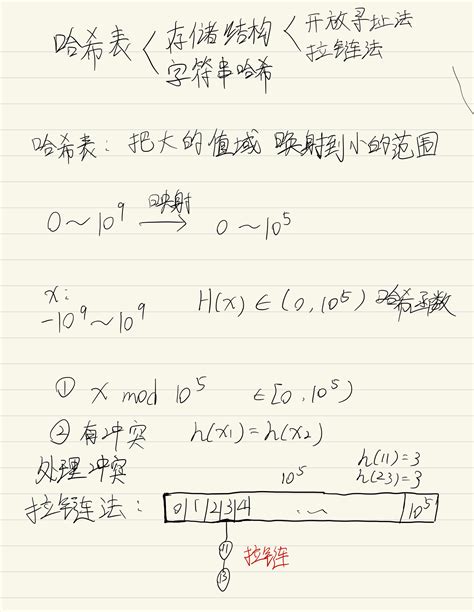 哈希表 存储结构 开放寻址法
拉链法
字符串哈希
哈希表：把大的值域 映射到小的范围
0～10⁹ 映射 0～10⁵
x:
-10⁹～10⁹ H(x) ∈ (0, 10⁵) 哈希函数
① x mod 10⁵ ∈[0, 10⁵)
② 有冲突 h(x₁)=h(x₂)
处理冲突 10⁵ h(11)=3
h(23)=3
拉链法： 0 1 2 3 4 ... 10⁵
11 拉链
13